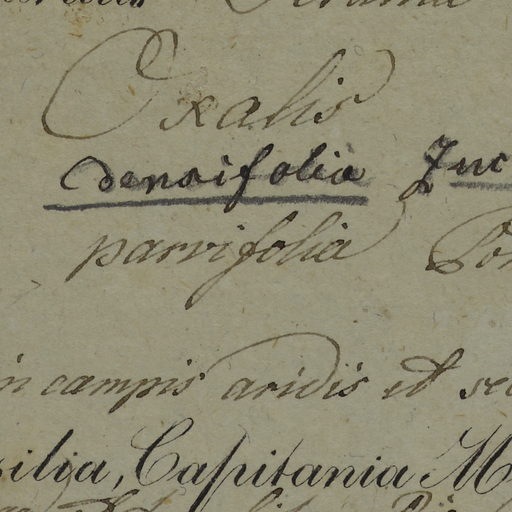 Oxalis
densifolia Zuc
parvifolia
in campis aridis et
silia, Capitania M